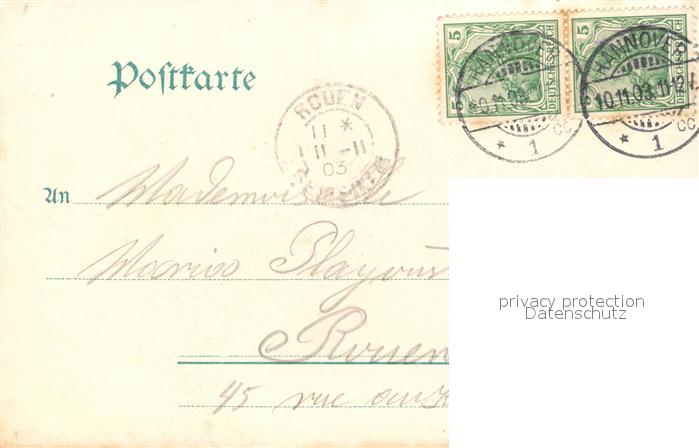 Postkarte
5 5 DEUTSCHES REICH
5 DEUTSCHES REICH
HANNOVER
10.11.03.
* 1 CC
HANNOVER
10.11.03.11-12
* 1 CC
ROUEN
11 *
11 -11
03
An Mademoiselle
Playoust
Rouen
45 rue aux
privacy protection
Datenschutz